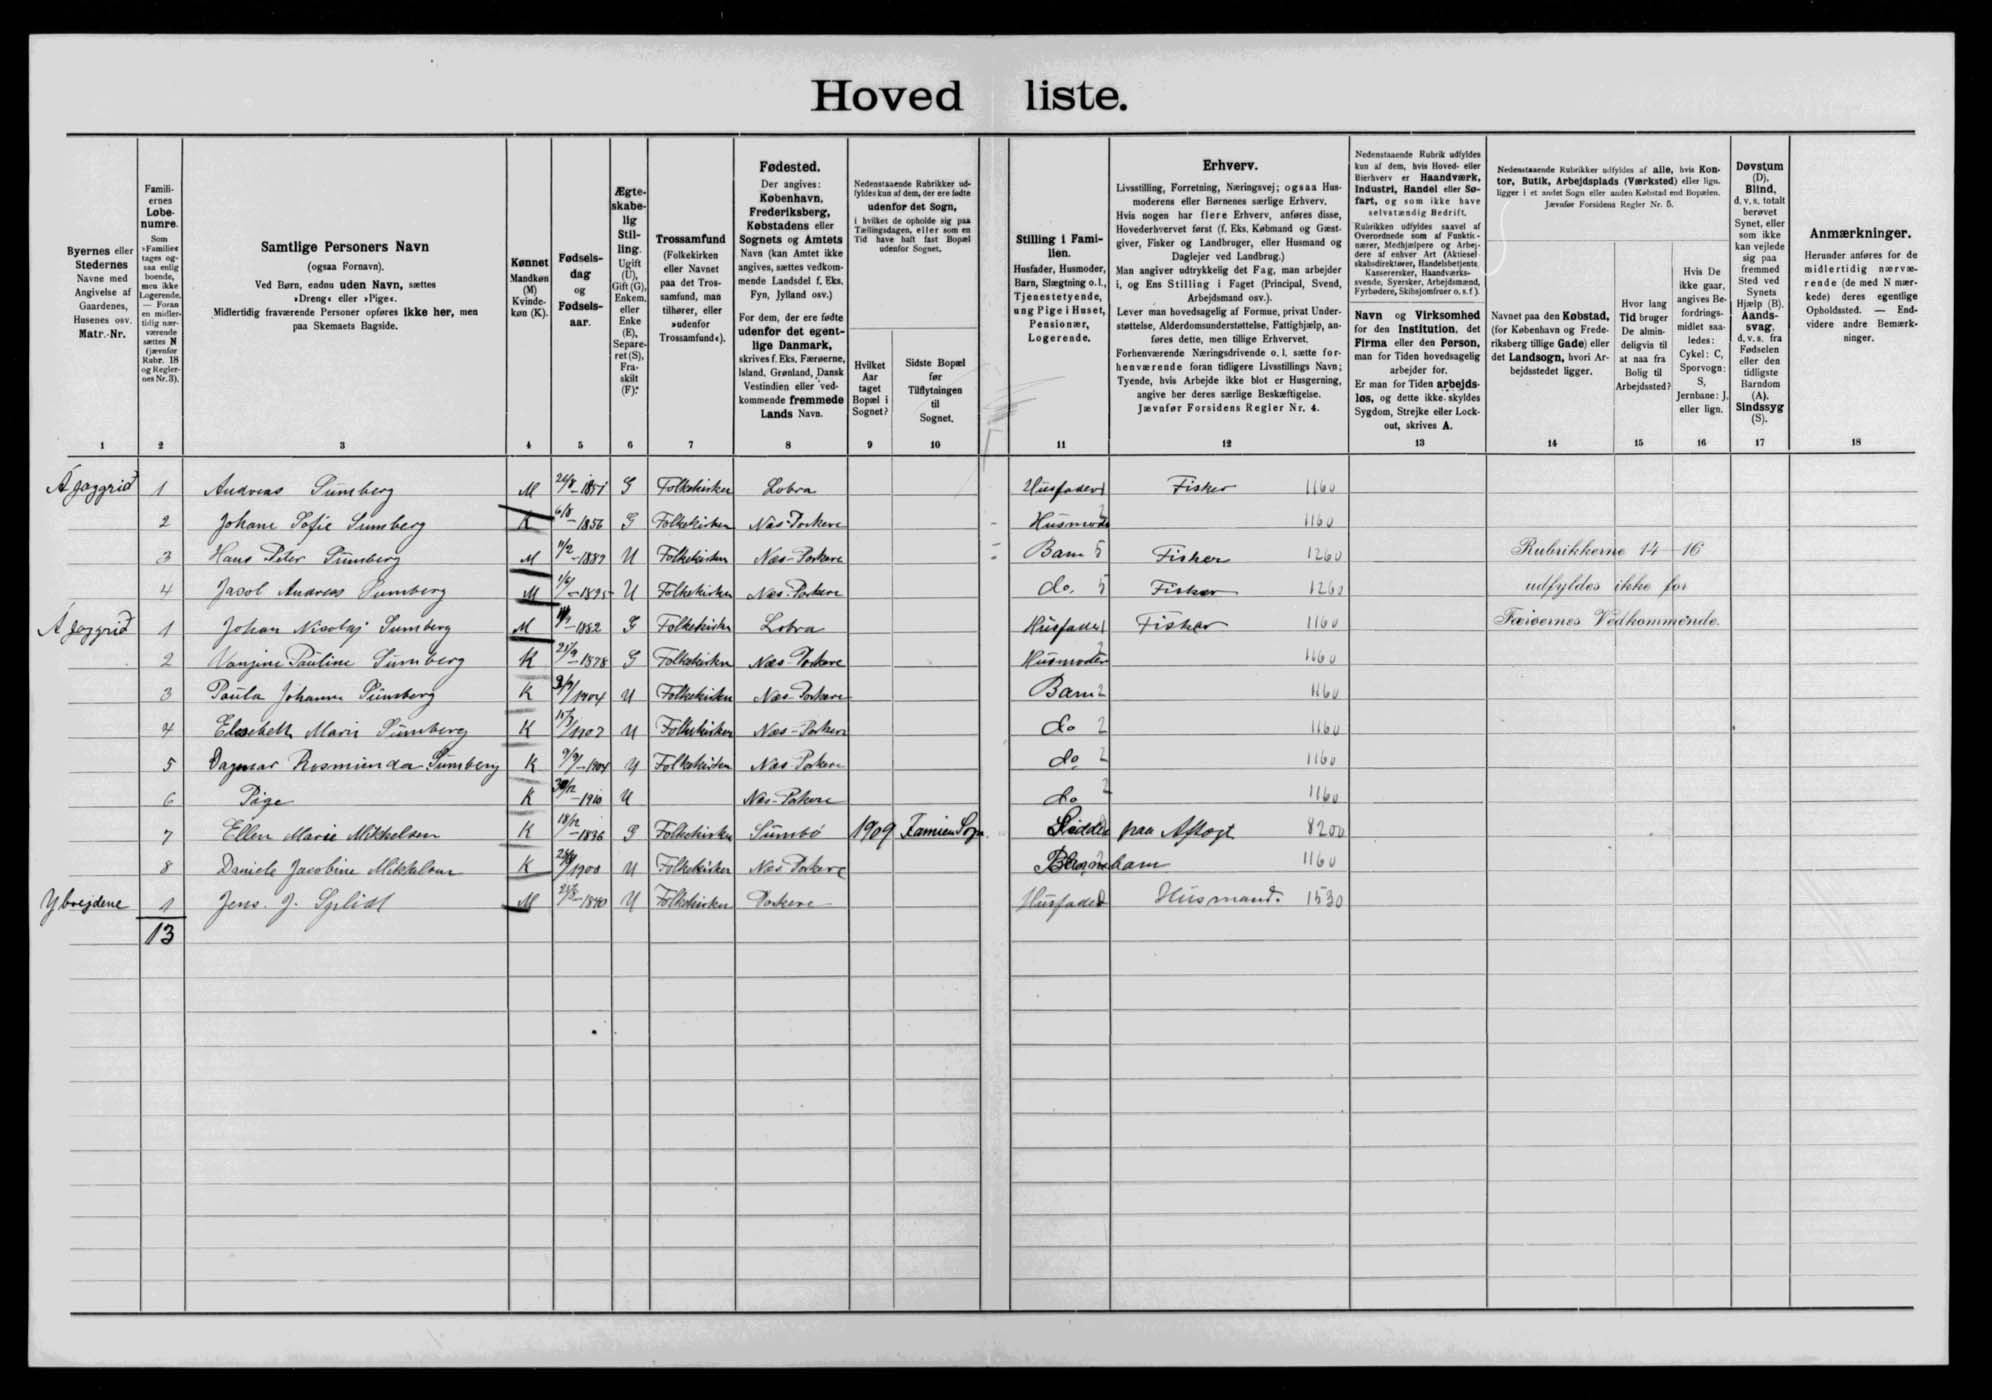 Hovedliste.
Byernes eller Stedernes Navne med Angivelse af Gaardenes, Husenes osv. Matr.-Nr.
Familiernes Løbenumre.
Som »Familie« tages ogsaa enlig boende, men ikke Logerende. — Foran en midlertidig nærværende sættes N (jævnfør Rubr. 18 og Regler- nes Nr. 3).
Samtlige Personers Navn
(ogsaa Fornavn).
Ved Børn, endnu uden Navn, sættes »Dreng« eller »Pige«.
Midlertidig fraværende Personer opføres ikke her, men paa Skemaets Bagside.
Kønnet
Mandkøn (M) Kvindekøn (K).
Fødselsdag og Fødselsaar.
Ægteskabelig Stilling.
Ugift (U), Gift (G), Enkem. eller Enke (E), Separeret (S), Fraskilt (F).
Trossamfund
(Folkekirken eller Navnet paa det Trossamfund, man tilhører, eller »udenfor Trossamfund«).
Fødested.
Der angives: København, Frederiksberg, Købstadens eller Sognets og Amtets Navn (kan Amtet ikke angives, sættes vedkommende Landsdel f. Eks. Fyn, Jylland osv.)
For dem, der ere fødte udenfor det egentlige Danmark, skrives f. Eks. Færøerne, Island, Grønland, Dansk Vestindien eller vedkommende fremmede Lands Navn.
Nedenstaaende Rubrikker udfyldes kun af dem, der ere fødte udenfor det Sogn, i hvilket de opholde sig paa Tællingsdagen, eller som en Tid have haft fast Bopæl udenfor Sognet.
Hvilket Aar taget Bopæl i Sognet?
Sidste Bopæl før Tilflytningen til Sognet.
Stilling i Familien.
Husfader, Husmoder, Barn, Slægtning o. l., Tjenestetyende, ung Pige i Huset, Pensionær, Logerende.
Erhverv.
Livsstilling, Forretning, Næringsvej; ogsaa Husmoderens eller Børnenes særlige Erhverv.
Hvis nogen har flere Erhverv, anføres disse, Hovederhvervet først (f. Eks. Købmand og Gæstgiver, Fisker og Landbruger, eller Husmand og Daglejer ved Landbrug.)
Man angiver udtrykkelig det Fag, man arbejder i, og Ens Stilling i Faget (Principal, Svend, Arbejdsmand osv.).
Lever man hovedsagelig af Formue, privat Understøttelse, Alderdomsunderstøttelse, Fattighjælp, anføres dette, men tillige Erhvervet.
Forhenværende Næringsdrivende o. l. sætte forhenværende foran tidligere Livsstillings Navn; Tyende, hvis Arbejde ikke blot er Husgerning, angive her deres særlige Beskæftigelse.
Jævnfør Forsidens Regler Nr. 4.
Nedenstaaende Rubrik udfyldes kun af dem, hvis Hoved- eller Bierhverv er Haandværk, Industri, Handel eller Søfart, og som ikke have selvstændig Bedrift.
Rubrikken udfyldes saavel af Overordnede som af Funktionærer, Medhjælpere og Arbejdere af enhver Art (Aktieselskabsdirektører, Handelsbetjente, Kassererske, Haandværkssvende, Syersker, Arbejdsmænd, Fyrbødere, Skibsjomfruer o. s. f.).
Navn og Virksomhed for den Institution, det Firma eller den Person, man for Tiden hovedsagelig arbejder for.
Er man for Tiden arbejdsløs, og dette ikke skyldes Sygdom, Strejke eller Lockout, skrives A.
Nedenstaaende Rubrikker udfyldes af alle, hvis Kontor, Butik, Arbejdsplads (Værksted) eller lign. ligger i et andet Sogn eller anden Købstad end Bopælen.
Jævnfør Forsidens Regler Nr. 5.
Navnet paa den Købstad, (for København og Frederiksberg tillige Gade) eller det Landsogn, hvori Arbejdsstedet ligger.
Hvor lang Tid bruger De almindeligvis til at naa fra Bolig til Arbejdssted?
Hvis De ikke gaar, angives Befordringsmidlet saaledes: Cykel: C, Sporvogn: S, Jernbane: J, eller lign.
Døvstum (D). Blind, d. v. s. totalt berøvet Synet, eller som ikke kan vejlede sig paa fremmed Sted ved Synets Hjælp (B). Aandssvag, d. v. s. fra Fødselen eller den tidligste Barndom (A). Sindssyg (S).
Anmærkninger.
Herunder anføres for de midlertidig nærværende (de med N mærkede) deres egentlige Opholdssted. — Endvidere andre Bemærkninger.
1 2 3 4 5 6 7 8 9 10 11 12 13 14 15 16 17 18
1 Andreas Sumberg M 1851 G Folkekirken Lobra Husfader 1 Fisker 1160
2 Johane Sofie Sumberg K 6/8-1856 G Folkekirken Næs-Porkere Husmoder 2 1160
3 Hans Peter Sumberg M U Folkekirken Næs-Porkere Barn 5 Fisker 1260 Rubrikkerne 14-16
4 Jacob Andreas Sumberg M 1895 U Folkekirken Næs-Porkere do. 5 Fisker 1260 udfyldes ikke for
1 Johan Nicolaj Sumberg M 1882 G Folkekirken Lobra Husfader 1 Fisker 1160 Færøernes Vedkommende.
2 Pauline Sumberg K 1878 G Folkekirken Næs-Porkere Husmoder 2 1160
3 Paula Johanna Sumberg K 1904 U Folkekirken Næs-Porkere Barn 2 1160
4 Elsebeth Marie Sumberg K 1907 U Folkekirken Næs-Porkere do 2 1160
5 Dagmar Rosmunda Sumberg K U Folkekirken Næs-Porkere do 2 1160
6 Pige K 1910 U Næs-Porkere do 2 1160
7 Ellen Marie Mikkelsen K 18/12-1836 G Folkekirken Sumbø 1909 Famien Sogn paa Aftægt 8200
8 Daniele Jacobine Mikkelsen K 1900 U Folkekirken Næs Porkere 1160
1 Jens. J. Splidt M 1840 U Folkekirken Porkere Husfader Husmand. 1530
13